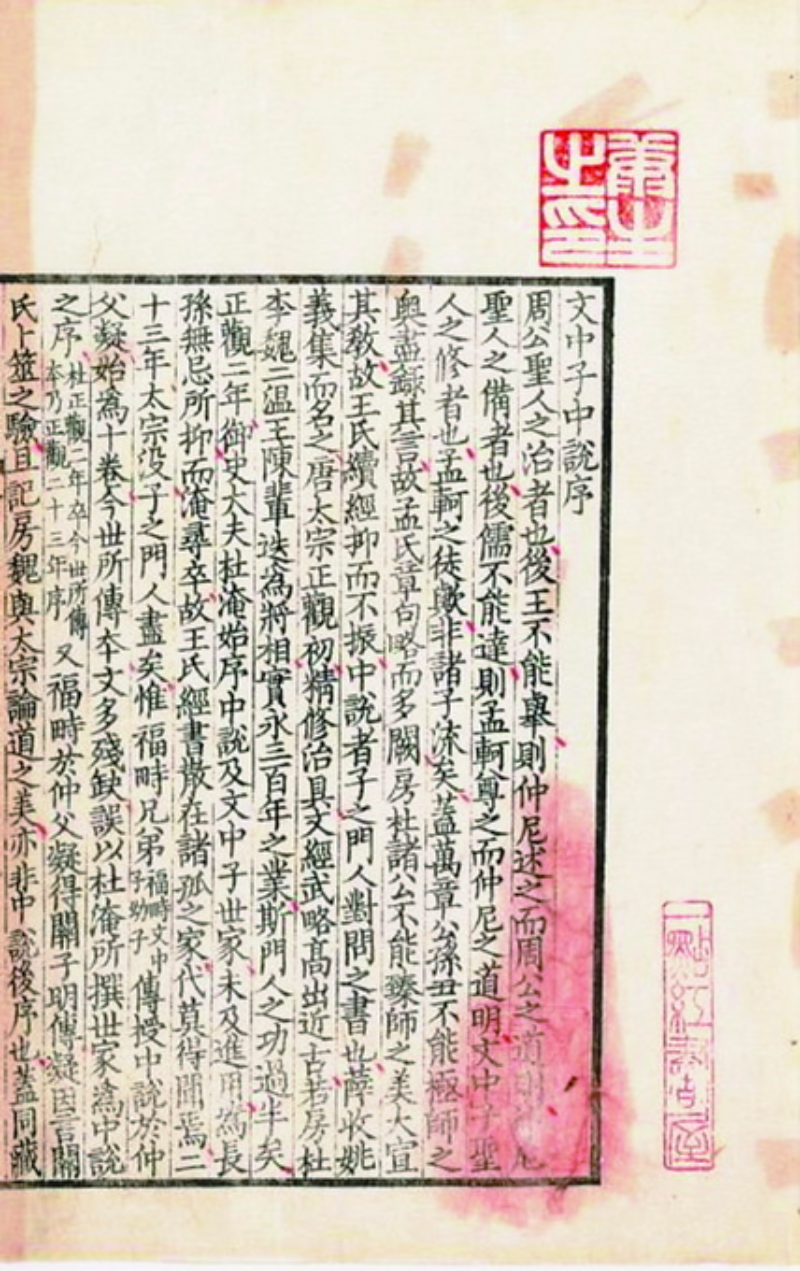 文中子中說序
周公聖人之治者也後王不能舉則仲尼述之而周公之道明仲尼
聖人之備者也後儒不能達則孟軻尊之而仲尼之道明文中子聖
人之修者也孟軻之徒歟非諸子流矣蓋萬章公孫丑不能極師之
奧盡錄其言故孟氏章句略而多闕房杜諸公不能臻師之美大宣
其敎故王氏續經抑而不振中說者子之門人對問之書也薛收姚
義集而名之唐太宗正觀初精修治具文經武略髙出近古若房杜
李魏二温王陳輩迭為將相實永三百年之業斯門人之功過半矣
正觀二年御史大夫杜淹始序中說及文中子世家未及進用為長
孫無忌所抑而淹尋卒故王氏經書散在諸孤之家代莫得聞焉二
十三年太宗没子之門人盡矣惟福畤兄弟福畤文中子幼子傳授中說於仲
父凝始為十卷今世所傳夲文多殘缺誤以杜淹所撰世家為中說
之序杜正觀二年卒今世所傳夲乃正觀二十三年序又福畤於仲父凝得關子明傳凝因言關
氏卜筮之驗且記房魏與太宗論道之美亦非中說後序也蓋同藏
之印